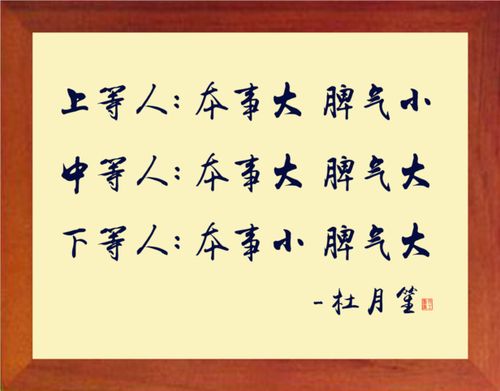 上等人:本事大 脾气小
中等人:本事大 脾气大
下等人:本事小 脾气大
-杜月笙